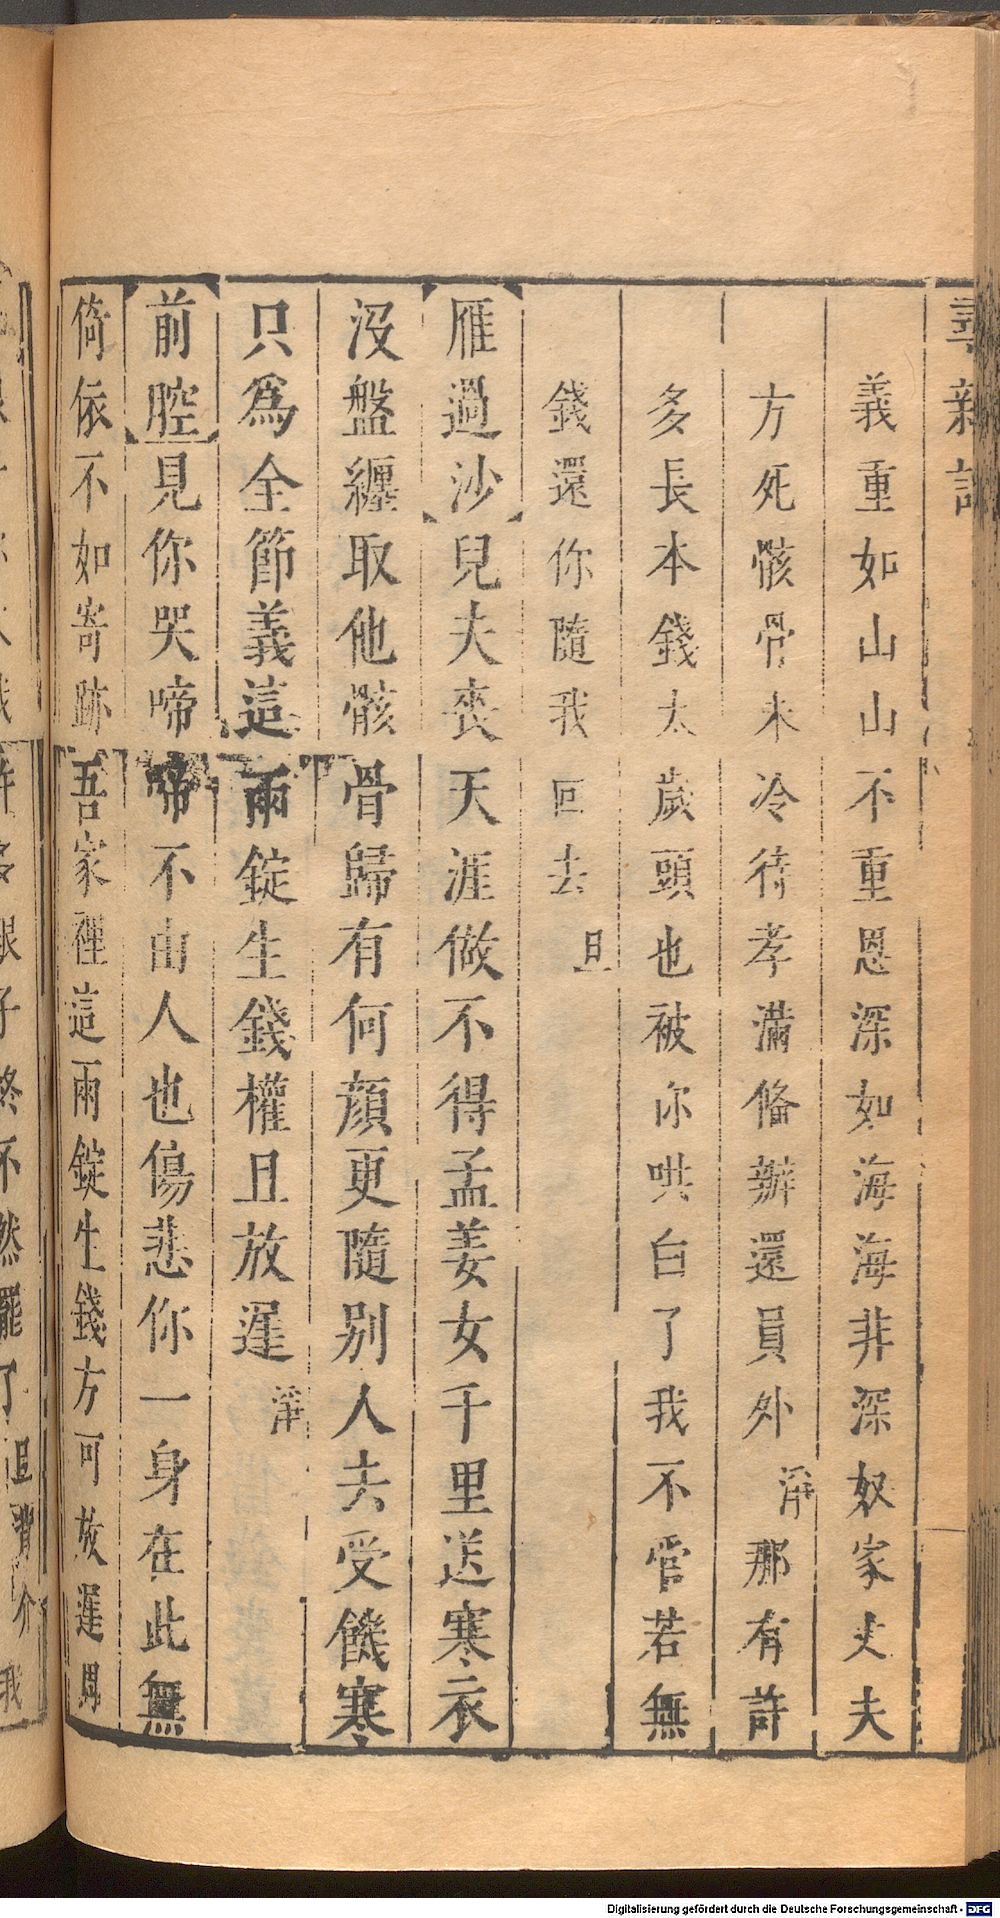 尋親記
義重如山山不重恩深如海海非深奴家丈夫
方死骸骨未冷待孝滿俻辦還員外 淨那有許
多長本錢太歲頭也被你哄白了我不管若無
錢還你隨我回去 旦
雁過沙兒夫喪天涯做不得孟姜女千里送寒衣
沒盤纏取他骸骨歸有何顔更隨别人去受饑寒
只爲全節義這兩錠生錢權且放遲 淨
前腔見你哭啼啼不由人也傷悲你一身在此無
倚依不如寄跡吾家裡這兩錠生錢方可放遲
Digitalisierung gefördert durch die Deutsche Forschungsgemeinschaft - DFG